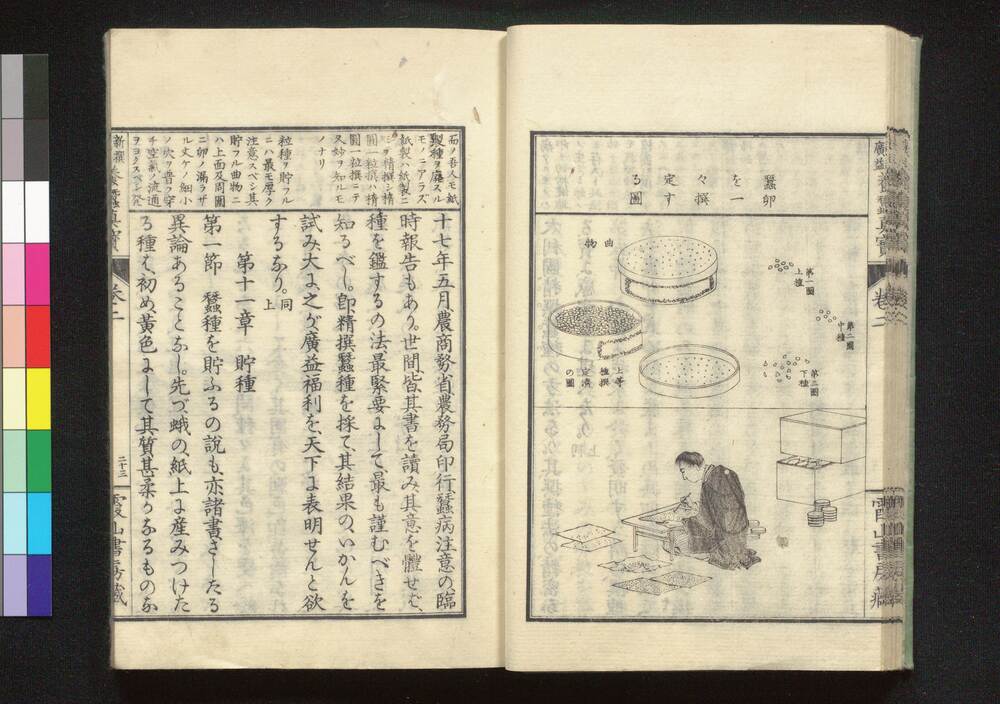 蠶卵
を一
々撰
定す
る圖
曲物
第一圖
上種
第二圖
中種
第三圖
下種
上等
撰種
定濟
の圖
十七年五月、農商務省農務局印行蠶病注意の、臨
時報告もあり。世間、皆其書を讀み、其意を體せば、
種を鑑するの法最緊要にして、最も謹むべきを
知るべし。即精撰蠶種を採て、其結果の、いかんを
試み、大に之が廣益福利を、天下に表明せんと欲
するなり。同上
第十一章　貯種
第一節　蠶種を貯ふるの說も、亦諸書さしたる
異論あることなし。先づ、蛾の、紙上に産みつけた
る種は、初め、黄色にして其質甚柔かなるものな
製種ヲ廢スル
モノニアラズ
紙製ハ紙製ニ
シテ精撰シ精
圓一粒撰ハ精
圓一粒撰ニテ
又妙ヲ知ルモ
ノナリ
粒種ヲ貯フル
ニハ最モ厚ク
注意スベシ其
貯フル曲物ニ
ハ上面及周圍
ニ卵ノ漏ラザ
ル丈ケノ細小
ノ穴ヲ普フ穿
チ空氣ノ流通
ヲヨクスベシ発
二十三
霞山書房藏